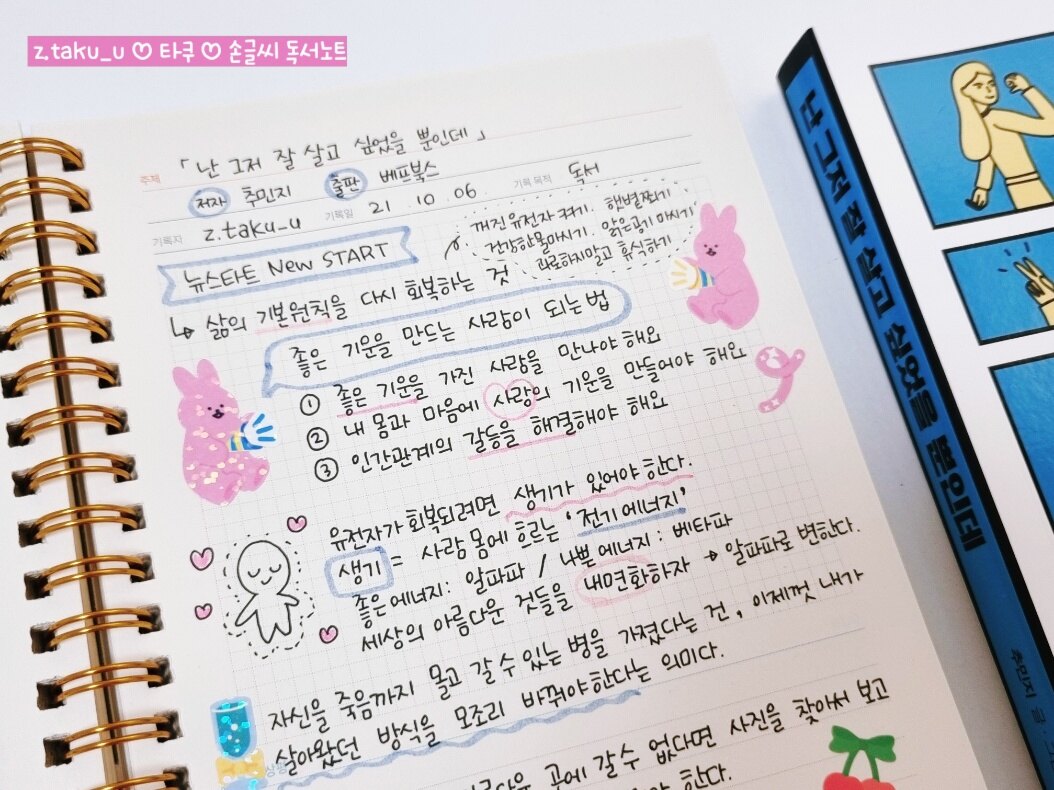 z.taku_u ♡ 타쿠 ♡ 손글씨 독서노트
주제 「난 그저 잘 살고 싶었을 뿐인데」
저자 추민지 출판 베프북스
기록자 z.taku_u 기록일 21. 10. 06 기록 목적 독서
꺼진 유전자 켜기. 햇볕쬐기
건강한물마시기. 맑은공기 마시기
과로하지말고 휴식하기
뉴스타트 New START
↳ 삶의 기본원칙을 다시 회복하는 것
좋은 기운을 만드는 사람이 되는법
① 좋은 기운을 가진 사람을 만나야 해요
② 내 몸과 마음에 사랑의 기운을 만들어야 해요
③ 인간관계의 갈등을 해결해야 해요
유전자가 회복되려면 생기가 있어야 한다.
생기 = 사람 몸에 흐르는 '전기에너지'
좋은에너지: 알파파 / 나쁜에너지: 베타파
세상의 아름다운 것들을 내면화하자 → 알파파로 변한다.
자신을 죽음까지 몰고 갈 수 있는 병을 가졌다는 건, 이제껏 내가
살아왔던 방식을 모조리 바꿔야한다는 의미다.
곳에 갈 수 없다면 사진을 찾아서 보고
한다.
난 그저 잘 살고 싶었을 뿐인데
추민지 글